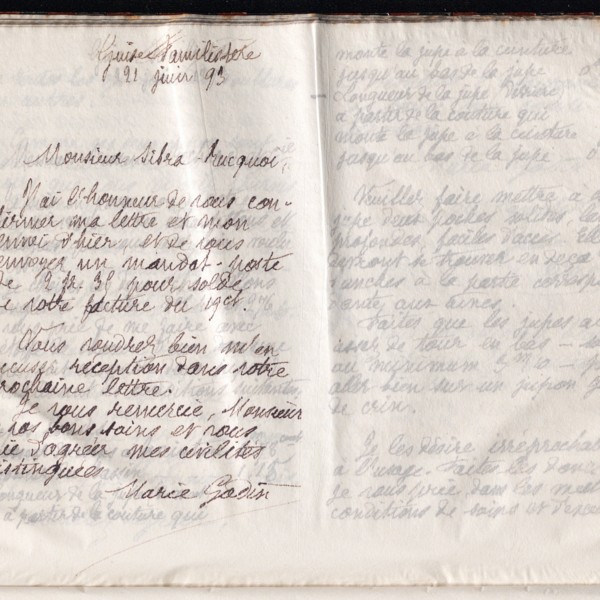 Guise Familistère
21 juin 93
Monsieur Sibra Lucquoi,
J'ai l'honneur de vous con-
firmer ma lettre et mon
envoi d'hier et de vous
envoyer un mandat-poste
de 2 fr. 35 pour solde
e votre facture du 19 ct.
Vous voudrez bien m'en
accuser réception dans votre
prochaine lettre.
Je vous remercie, Monsieur
vos bons soins et vous
rie d'agréer mes civilités
distinguées
Marie Godin
longueur de la
à partir de la couture qui
monte la jupe à la ceinture
jusqu'au bas de la jupe
Longueur de la jupe désirée
à partir de la couture qui
monte la jupe à la ceinture
jusqu'au bas de la jupe
Veuillez faire mettre à
jupe deux poches
profondes, faciles d'accès. Elles
devront se trouver en deçà
hanches à la partie
dante aux reins.
Faites que les jupes
de tour en bas
au minimum 2m10
aller bien sur un jupon
de crin.
Je les désire irréprochables
à l'usage. Faites-les donc
je vous prie, dans les
conditions de soins et